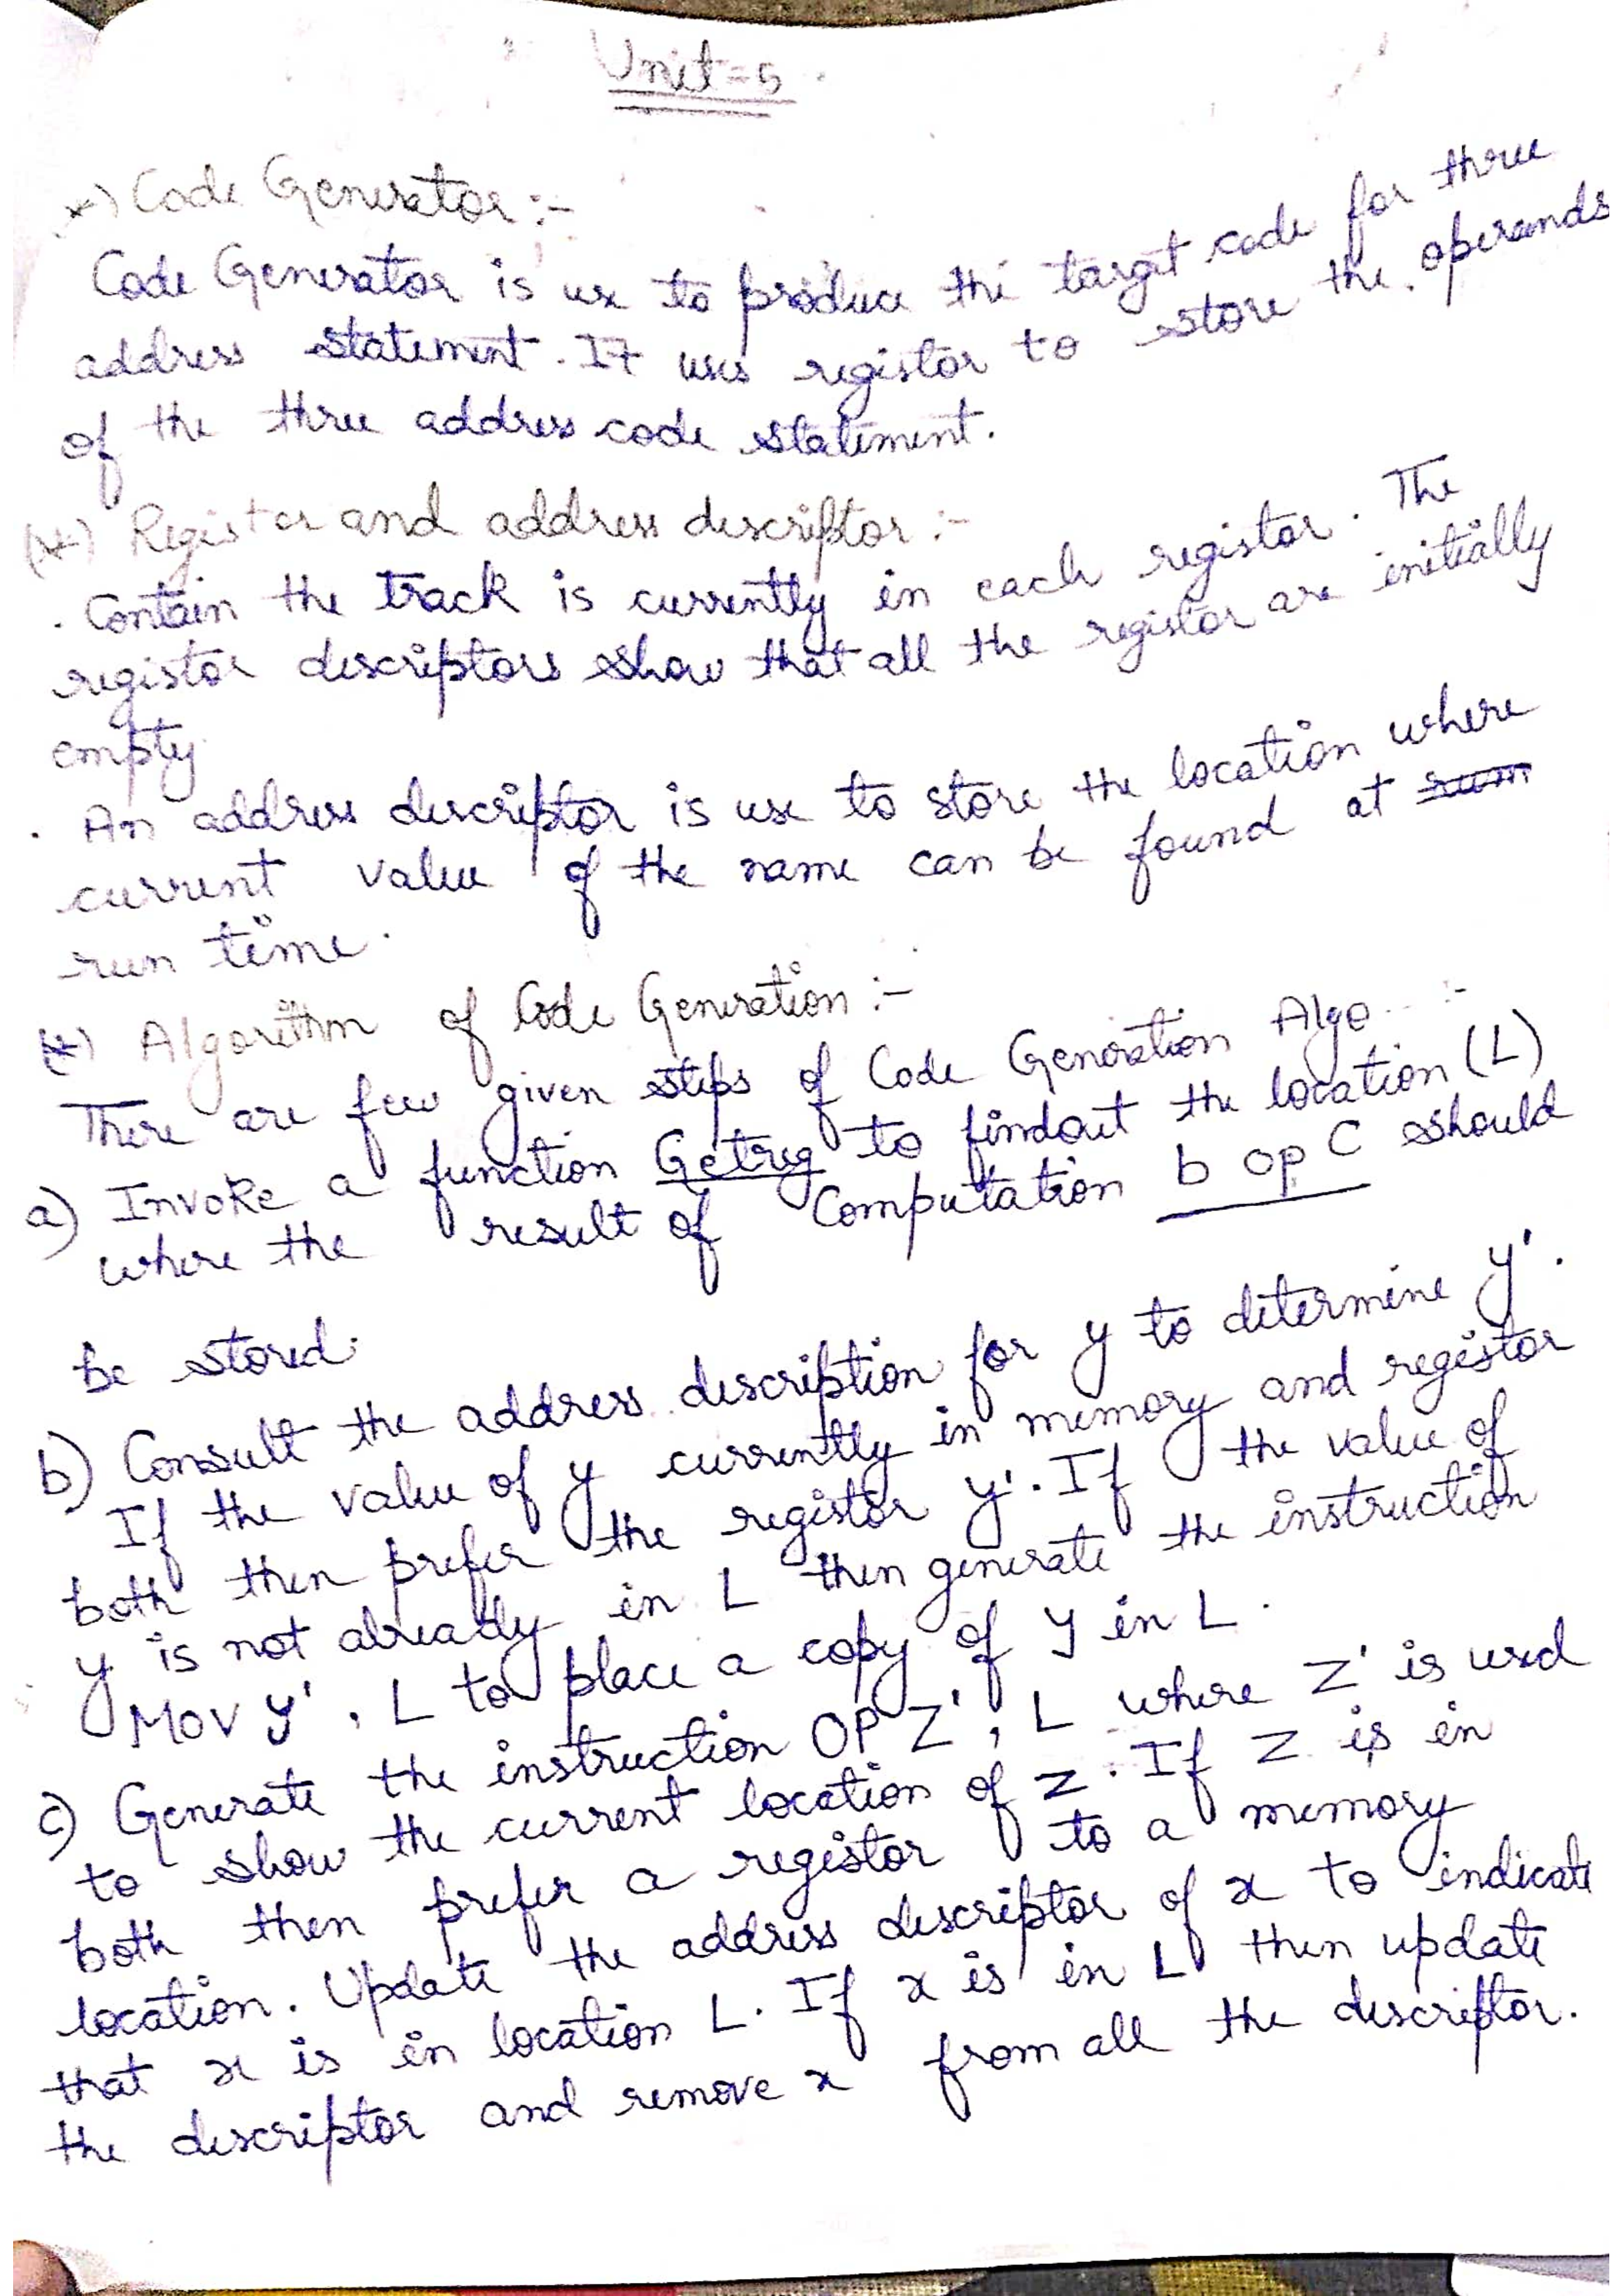 Unit = 5
*) Code Generator :-
Code Generator is use to produce the target code for three
address statement. It uses registor to store the operands
of the three address code statement.
(*) Registor and address descriptor :-
. Contain the track is currently in each registor. The
registor descriptors show that all the registor are initially
empty.
. An address descriptor is use to store the location where
current value of the name can be found at
run time.
(*) Algorithm of Code Generation :-
There are few given steps of Code Generation Algo :-
a) Invoke a function Getreg to findout the location (L)
where the result of Computation b op C should
be stored.
b) Consult the address description for y to determine y'.
If the value of y currently in memory and registor
both then prefer the registor y'. If the value of
y is not already in L then generate the instruction
MOV y', L to place a copy of y in L.
c) Generate the instruction OP Z', L where Z' is used
to show the current location of z. If Z is in
both then prefer a registor to a memory
location. Update the address descriptor of x to indicate
that x is in location L. If x is in L then update
the descriptor and remove x from all the descriptor.